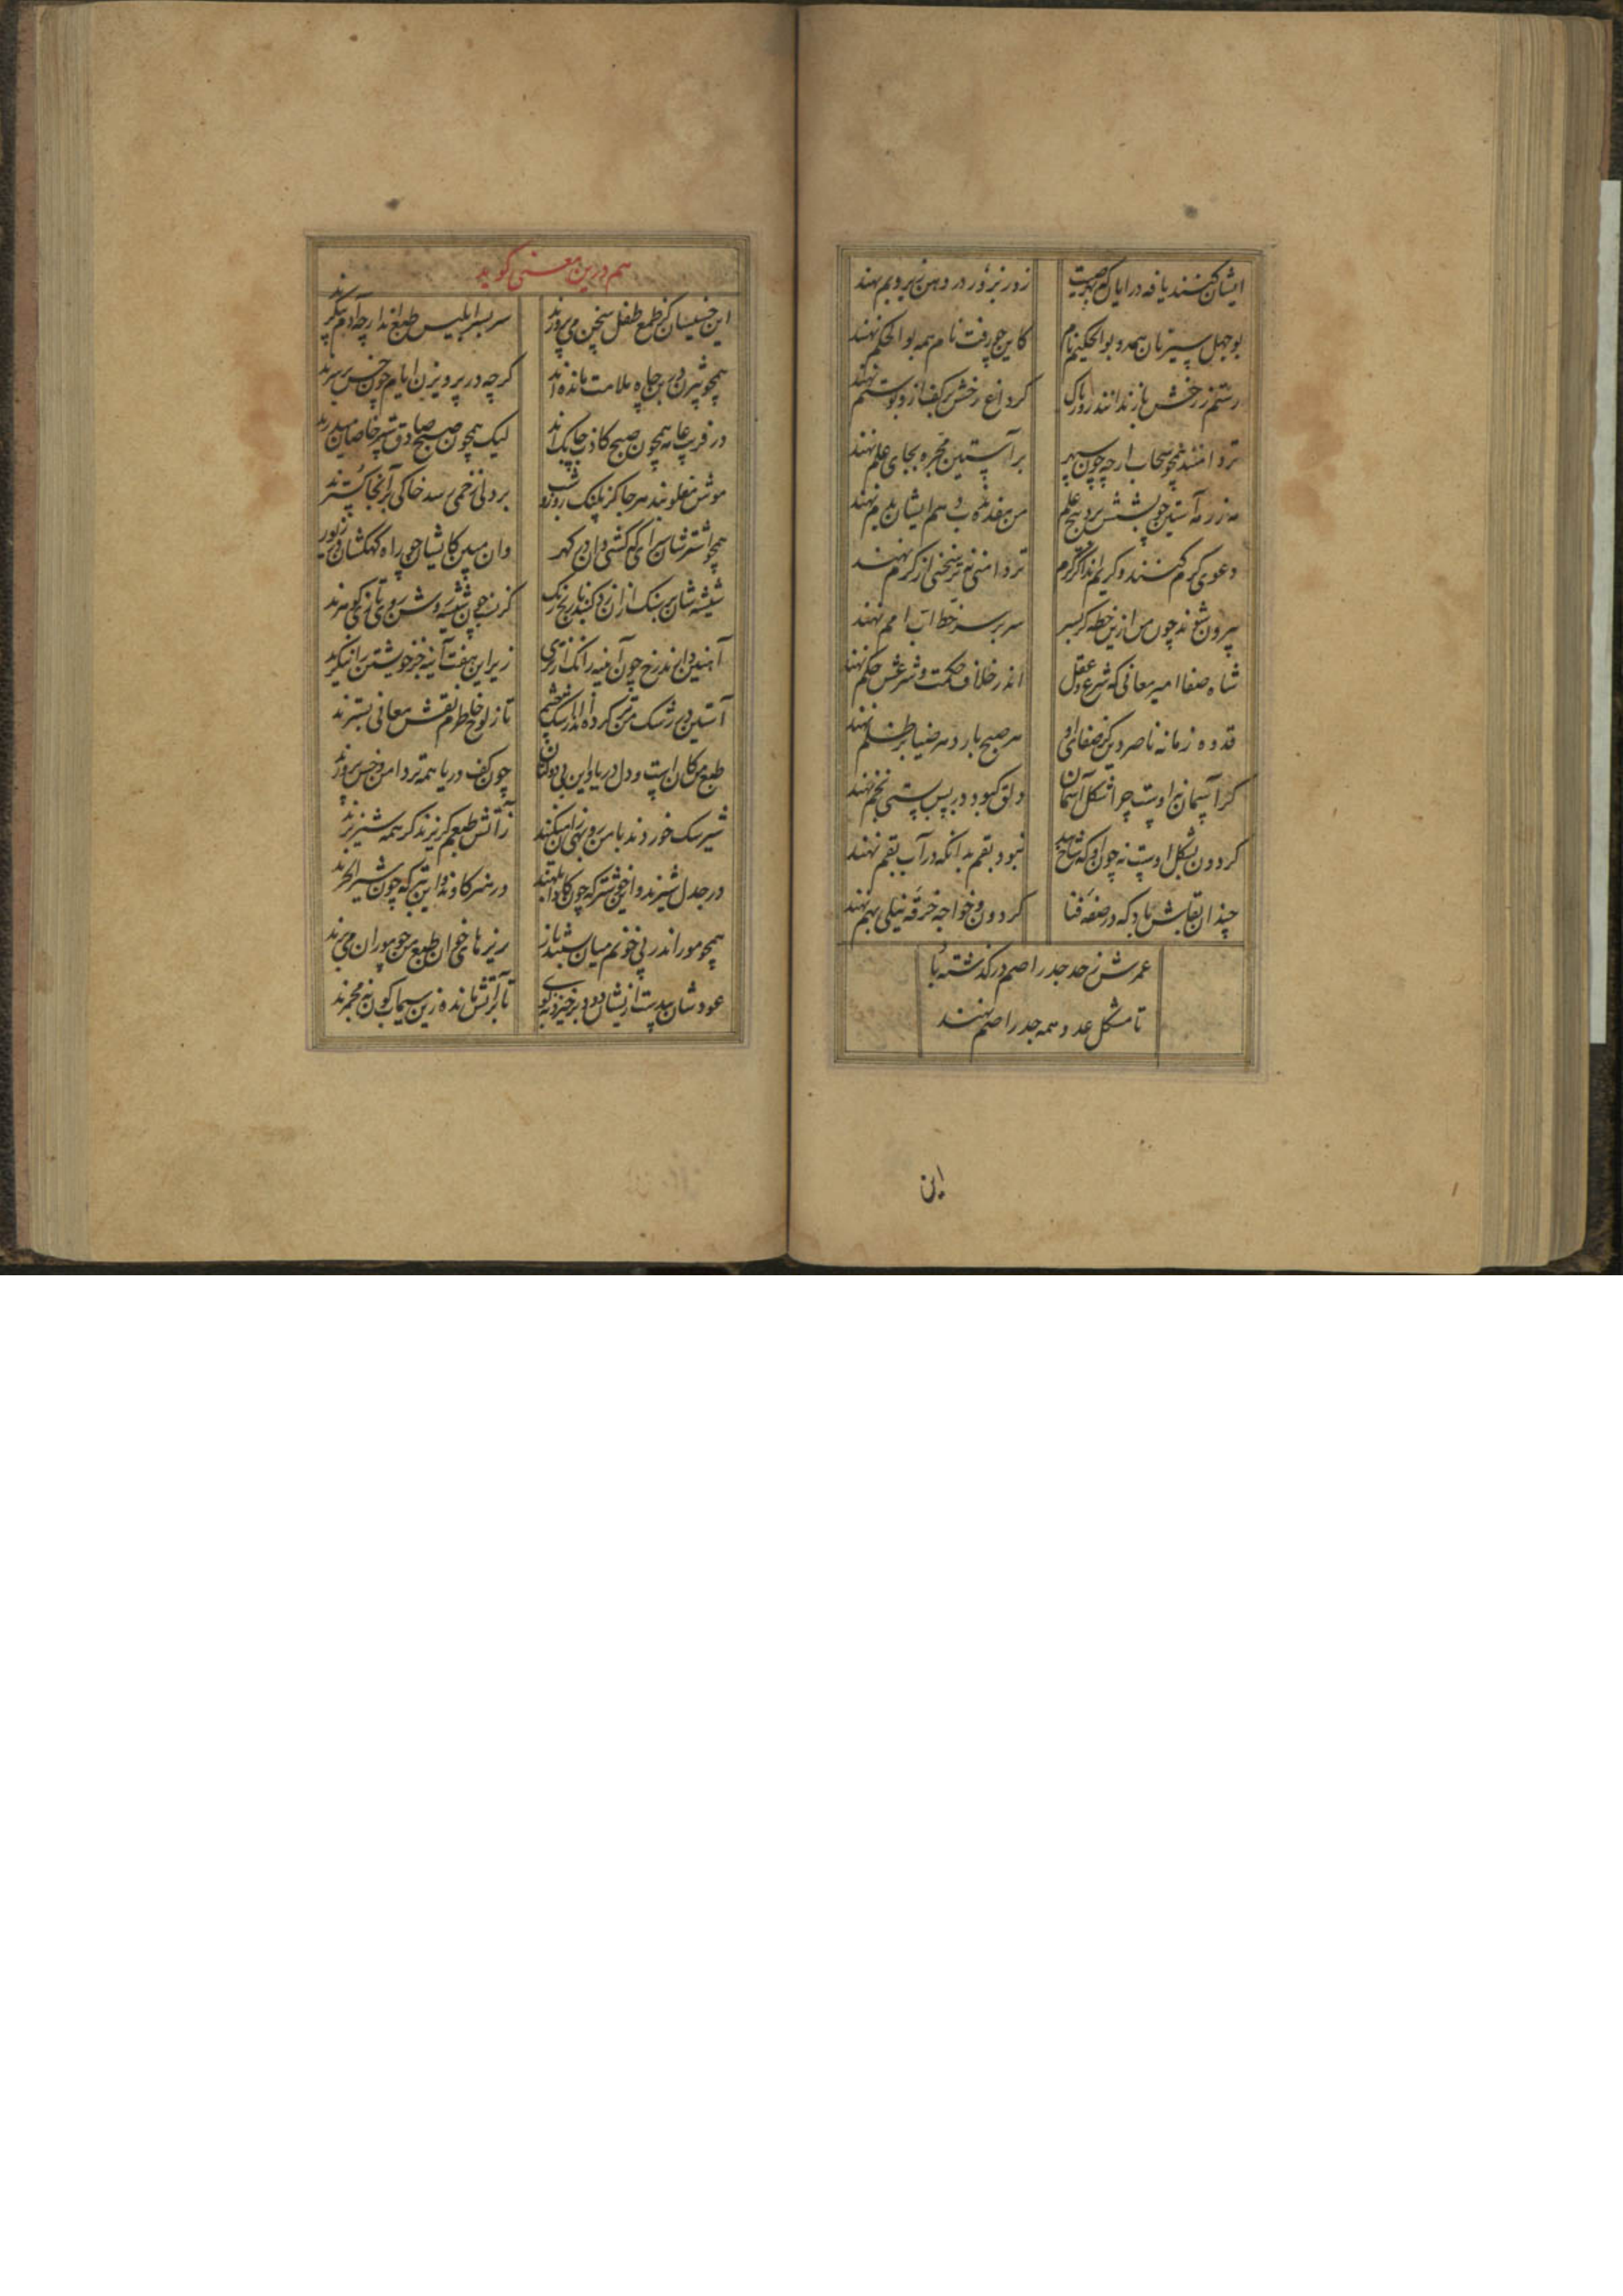 ایشان کنند یافه درایان که بهر صیت
زور نبرور در دهن زیر و بم نهند
بوجهل سیرتان همه و بوالحکیم نام
کاین چو رفت نام همه بوالحکم نهند
رستم ز رخش باز ندانند روز باک
کر داغ رخش بر کف از دو ستم نهند
تردامنند همچو سحاب ارچه چون سپهر
بر آستین مجره بجای علم نهند
نه زر نه آستین چو پشتش برد هیچ علم
من مقتدا و هم ایشان بدم نهند
دعوی کرم کنند و کریم اند اگر کرم
تردامنی و سختی از کرم نهند
بیرون شوند چون من ازین خطه کر بسر
سر بر سر خطاب امم نهند
شاه صفا امیر معانی که شرع و عقل
اندر خلاف حکمت و شرعش حکم نهند
قدوه زمانه ناصر دین کز صفای او
هر صبح بار در ضیا بر ظلم نهند
کر آسمان نه اوست چرا شکل آسمان
دلق کبود در پس پشتی بخم نهند
کردون بشکل اوست نه چون او که شاخ بید
نبود بقم بدانکه در آب بقم نهند
چندان بقاش باد که در صفه فنا
کردون و خواجه خرقه نیلی بهم نهند
عمرش ز حد جدر اصم در کذشته باد
تا مشکل عدد همه جدر اصم نهند
این
هم درین معنی کوید
این خسیسان کز طمع طفل سخن می‌پرورند
سربسر ابلیس طبع‌اند ارچه آدم پیکرند
همچو بیژن در بن چاه ملامت مانده اند
کرچه در پرویزن ایام چون خس بر سرند
در فریب عامه همچون صبح کاذب چابک اند
لیک همچون صبح صادق ستر خاصان میدرند
موش مفلوبند هر جا کز پلنک روز و شب
بر دلی زخمی رسد خاکی بر آنجا کسترند
همچو اشترشان سرای که کشی دان در کهر
وان مبین کایشان چو راه کهکشان در زیورند
شیشه شان بر سنک ازان زد کنبد نارنج رنک
کز نسب چون شیشه وش روی تازی کوهرند
آهنین دل‌اند رخ چون آینه زانک از تری
زیر این هفت آینه جز خویشتن را ننکرند
آستین در اشک تر کرده اند از اشک چشم
تا ز لوح خاطرم نقش معانی بسترند
طبع من کان است و دل دریا و این بی دولتان
چون کف دریا همه تردامن و خس پرورند
شیر سک خوردند با من روبهی زان میکنند
ز آتش طبعم کریزند کر همه شیر نرند
در جدل شیرند و این خوشتر که چون کاو ابلهند
در هنر کاوند و این تیره که چون شیر ابخرند
همچو مور اندر پی خونم میان بسته باز
ریزهای خوان طبع من چو موران می‌برند
عود شان بید است ازیشان دود برخیزد بسی
تا بر آتش مانده زین سیماب کون نه مجمرند